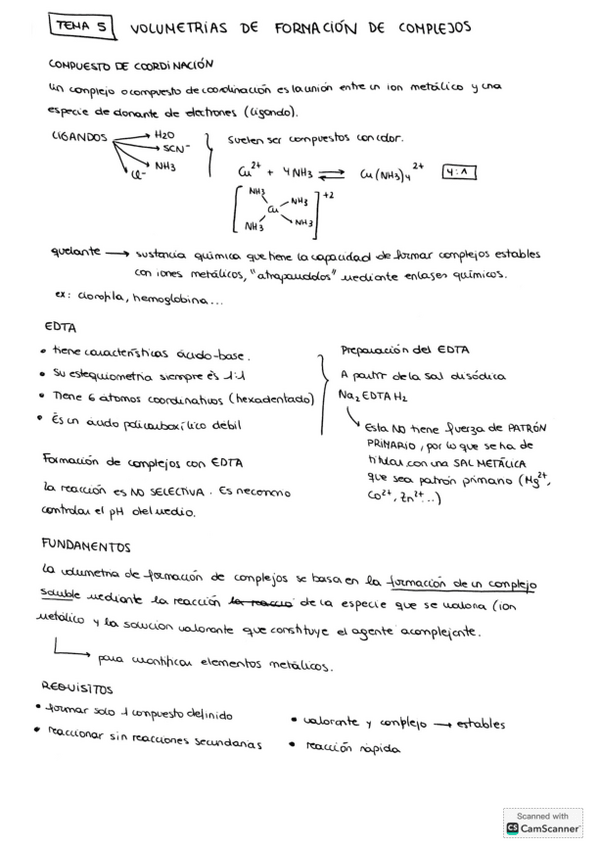 TEMA 5 VOLUMETRIAS DE FORMACIÓN DE COMPLEJOS
COMPUESTO DE COORDINACIÓN
Un complejo o compuesto de coordinación es la unión entre un ion metálico y una
especie de donante de electrones (ligando).
LIGANDOS
H2O
SCN⁻
NH3
Cl⁻
Suelen ser compuestos con color.
Cu²⁺ + 4NH3 ⇌ Cu(NH3)4²⁺ 4:1
NH3
NH3
Cu
NH3
NH3
+2
quelante → sustancia química que tiene la capacidad de formar complejos estables
con iones metálicos, "atrapandolos" mediante enlases químicos.
ex: clorofila, hemoglobina...
EDTA
• tiene características ácido-base.
• Su estequiometria siempre és 1:1
• Tiene 6 átomos coordinativos (hexadentado)
• És un ácido policarboxílico debil
Preparación del EDTA
A partir de la sal disódica
Na2EDTAH2
Esta NO tiene fuerza de PATRÓN
PRIMARIO, por lo que se ha de
titular con una SAL METÁLICA
que sea patrón primario (Mg²⁺,
Co²⁺, Zn²⁺...)
Formación de complejos con EDTA
La reacción es NO SELECTIVA. Es necesario
controlar el pH del medio.
FUNDAMENTOS
La volumetria de formación de complejos se basa en la formación de un complejo
soluble mediante la reacción la reaccio de la especie que se valora (ion
metálico y la solución valorante que constituye el agente acomplejante.
→ para cuantificar elementos metálicos.
REQUISITOS
• formar solo 1 compuesto definido
• reaccionar sin reacciones secundarias
• valorante y complejo → estables
• reacción ràpida
Scanned with
CS CamScanner